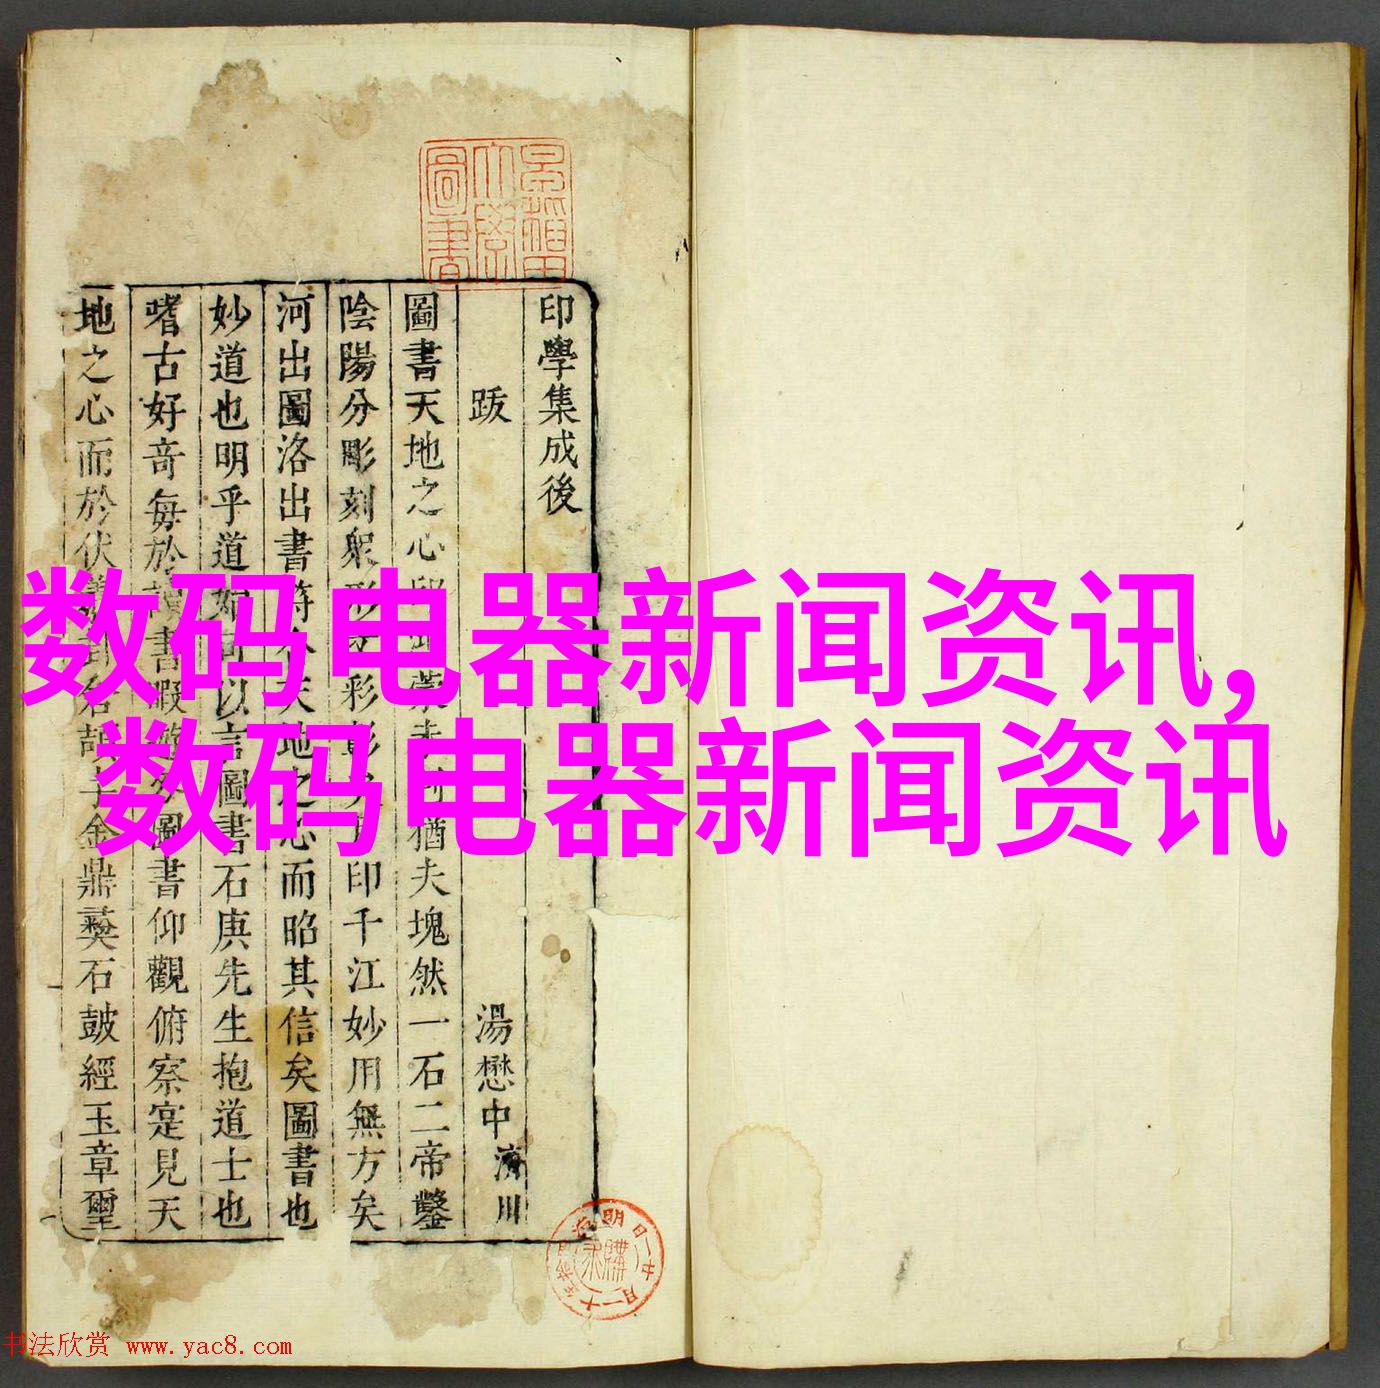 数码电器新闻资讯,
数码电器新闻资讯
印學集成後
跋 湯懋中 濟川
圖書天地之心 猶夫塊然一石二帝鑿
陰陽分彫刻衆形 彩 印千江妙用無方矣
河出圖洛出書符 天地之心而昭其信矣圖書也
妙道也明乎道 以言圖書石庚先生抱道士也
嗜古好奇每於 書暇 圖書仰觀俯察寔見天
地之心而於伏羲 金鼎彝石鼓經玉章璽
圖書
明治 年十一月廿一日 購求
书法欣赏 www.yac8.com